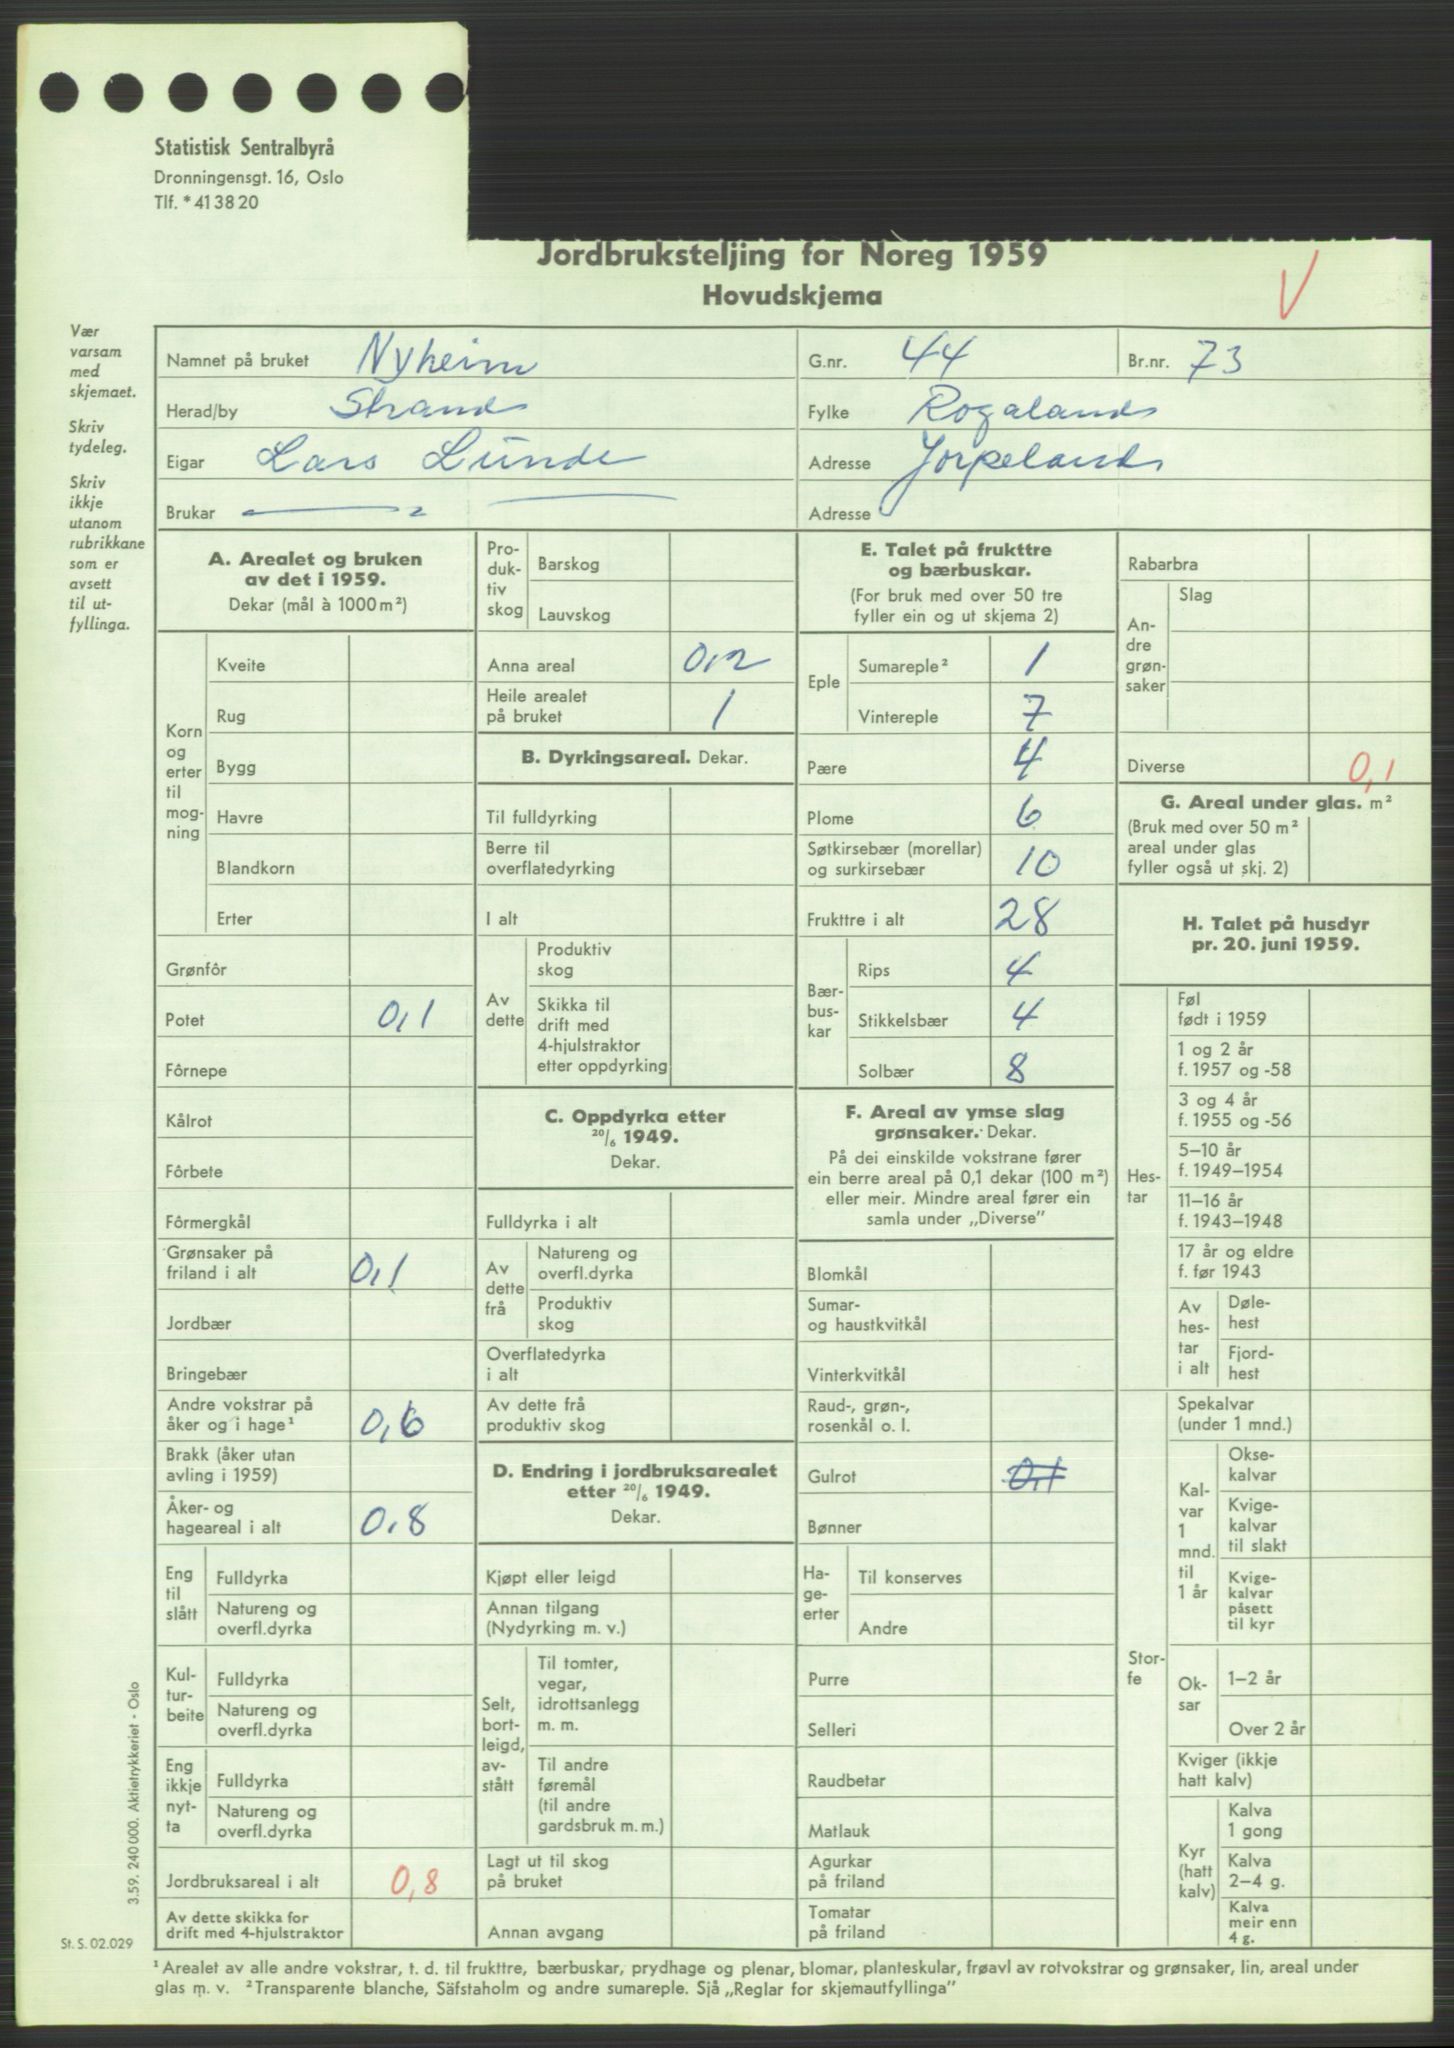 Statistisk Sentralbyrå
Dronningensgt. 16, Oslo
Tlf. * 41 38 20
Jordbruksteljing for Noreg 1959
Hovudskjema
V
Vær
varsam
med
skjemaet.
Skriv
tydeleg.
Skriv
ikkje
utanom
rubrikkane
som er
avsett
til ut-
fyllinga.
Namnet på bruket Nyheim G.nr. 44 Br.nr. 73
Herad/by Strand Fylke Rogaland
Eigar Lars Lunde Adresse Jørpeland
Brukar Adresse
A. Arealet og bruken
av det i 1959.
Dekar (mål à 1000 m²)
Korn
og
erter
til
mog-
ning
Kveite
Rug
Bygg
Havre
Blandkorn
Erter
Grønfôr
Potet 0,1
Fôrnepe
Kålrot
Fôrbete
Fôrmergkål
Grønsaker på
friland i alt 0,1
Jordbær
Bringebær
Andre vokstrar på
åker og i hage¹ 0,6
Brakk (åker utan
avling i 1959)
Åker- og
hageareal i alt 0,8
Eng
til
slått
Fulldyrka
Natureng og
overfl.dyrka
Kul-
tur-
beite
Fulldyrka
Natureng og
overfl.dyrka
Eng
ikkje
nyt-
ta
Fulldyrka
Natureng og
overfl.dyrka
Jordbruksareal i alt 0,8
Av dette skikka for
drift med 4-hjulstraktor
Pro-
duk-
tiv
skog
Barskog
Lauvskog
Anna areal 0,2
Heile arealet
på bruket 1
B. Dyrkingsareal. Dekar.
Til fulldyrking
Berre til
overflatedyrking
I alt
Av
dette
Produktiv
skog
Skikka til
drift med
4-hjulstraktor
etter oppdyrking
C. Oppdyrka etter
20/6 1949.
Dekar.
Fulldyrka i alt
Av
dette
frå
Natureng og
overfl.dyrka
Produktiv
skog
Overflatedyrka
i alt
Av dette frå
produktiv skog
D. Endring i jordbruksarealet
etter 20/6 1949.
Dekar.
Kjøpt eller leigd
Annan tilgang
(Nydyrking m. v.)
Selt,
bort-
leigd,
av-
stått
Til tomter,
vegar,
idrottsanlegg
m. m.
Til andre
føremål
(til andre
gardsbruk m. m.)
Lagt ut til skog
på bruket
Annan avgang
E. Talet på frukttre
og bærbuskar.
(For bruk med over 50 tre
fyller ein og ut skjema 2)
Eple
Sumareple² 1
Vintereple 7
Pære 4
Plome 6
Søtkirsebær (morellar)
og surkirsebær 10
Frukttre i alt 28
Bær-
bus-
kar
Rips 4
Stikkelsbær 4
Solbær 8
F. Areal av ymse slag
grønsaker. Dekar.
På dei einskilde vokstrane fører
ein berre areal på 0,1 dekar (100 m²)
eller meir. Mindre areal fører ein
samla under „Diverse”
Blomkål
Sumar-
og haustkvitkål
Vinterkvitkål
Raud-, grøn-,
rosenkål o. l.
Gulrot 0,1
Bønner
Ha-
ge-
erter
Til konserves
Andre
Purre
Selleri
Raudbetar
Matlauk
Agurkar
på friland
Tomatar
på friland
Rabarbra
An-
dre
grøn-
saker
Slag
Diverse 0,1
G. Areal under glas. m²
(Bruk med over 50 m²
areal under glas
fyller også ut skj. 2)
H. Talet på husdyr
pr. 20. juni 1959.
Hes-
tar
Føl
født i 1959
1 og 2 år
f. 1957 og -58
3 og 4 år
f. 1955 og -56
5–10 år
f. 1949–1954
11–16 år
f. 1943–1948
17 år og eldre
f. før 1943
Av
hes-
tar
i alt
Døle-
hest
Fjord-
hest
Stor-
fe
Spekalvar
(under 1 mnd.)
Kal-
var
1
mnd.
til
1 år
Okse-
kalvar
Kvige-
kalvar
til slakt
Kvige-
kalvar
påsett
til kyr
Ok-
sar
1–2 år
Over 2 år
Kviger (ikkje
hatt kalv)
Kyr
(hatt
kalv)
Kalva
1 gong
Kalva
2–4 g.
Kalva
meir enn
4 g.
3.59. 240 000. Aktietrykkeriet - Oslo
St. S. 02.029
¹ Arealet av alle andre vokstrar, t. d. til frukttre, bærbuskar, prydhage og plenar, blomar, planteskular, frøavl av rotvokstrar og grønsaker, lin, areal under
glas m. v. ² Transparente blanche, Säfstaholm og andre sumareple. Sjå „Reglar for skjemautfyllinga”